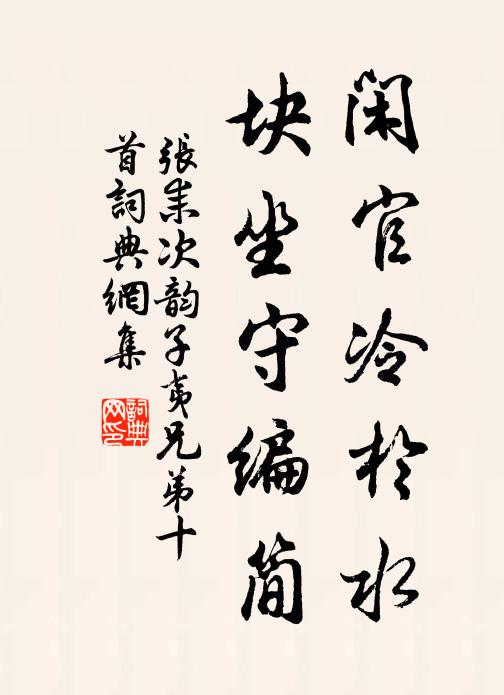 闲官冷於水
块坐守编简
張耒次韵子夷兄弟十
首詞典網集
詞典网印